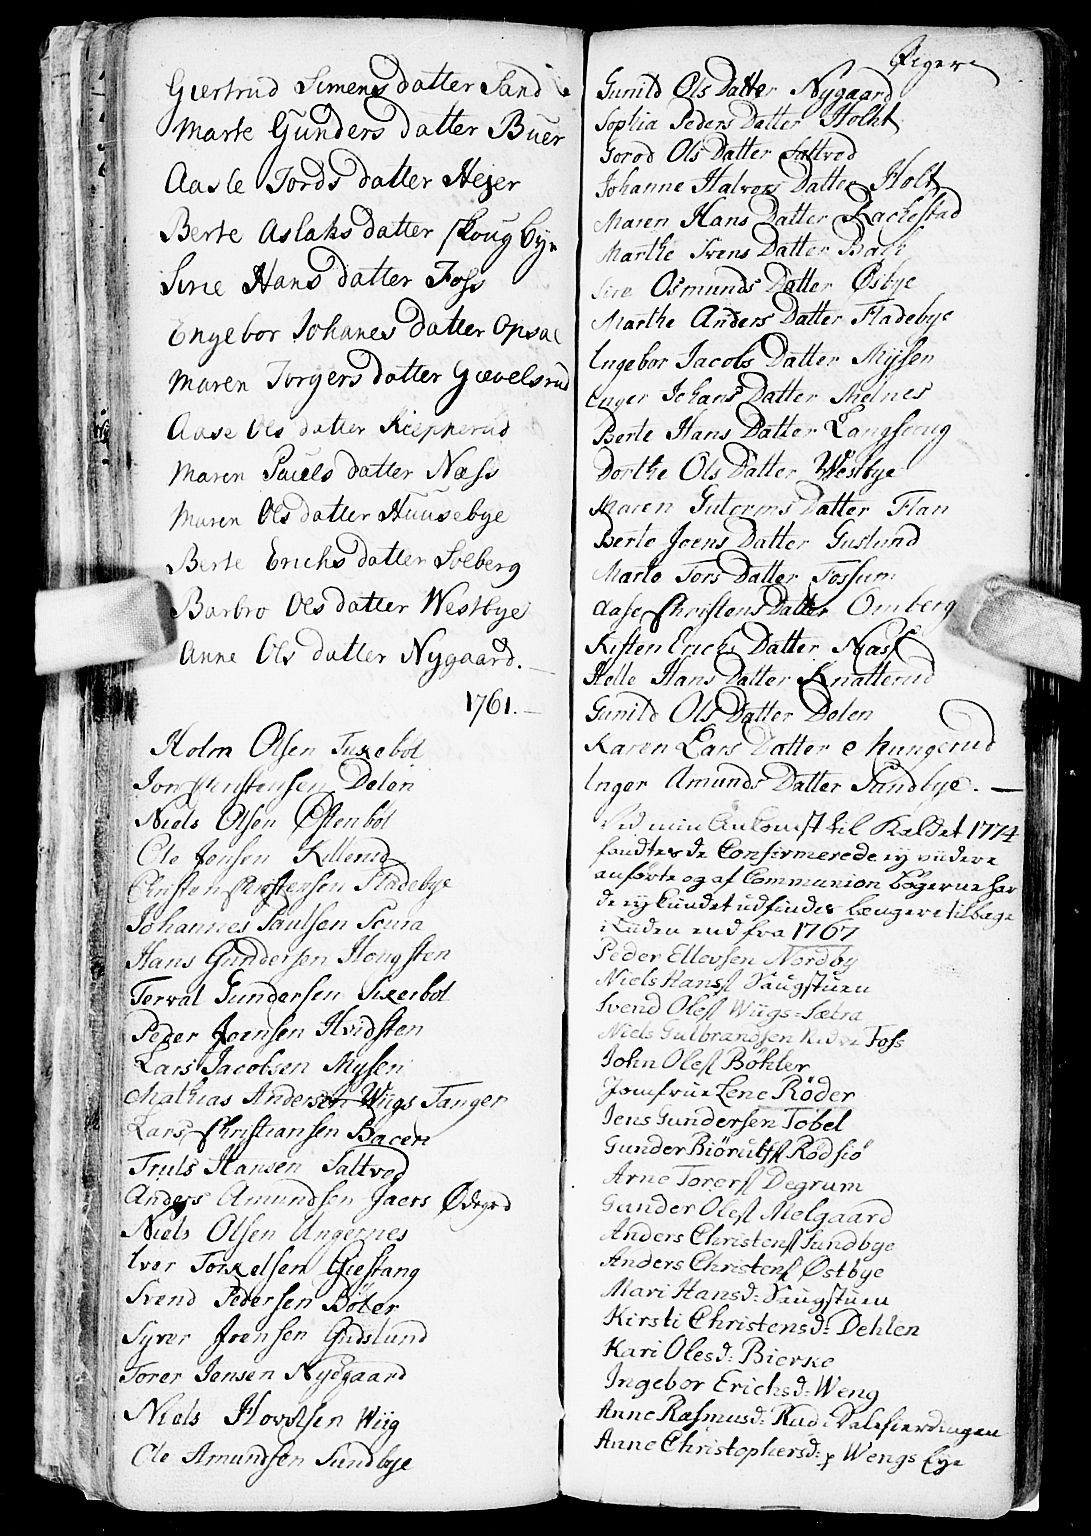 Giertrud Simensdatter Sand
Marte Gunders datter Buer
Aasle Tords datter Hejer
Berte Aslaks datter Skougbye
Sirie Hans datter Foss
Engebor Johanes datter Opsal
Maren Torgers datter Gævelsrud
Aase Ols datter Kiepperud
Maren Pouels datter Næss
Maren Ols datter Huusebye
Berte Erichs datter Solberg
Barbro Ols datter Westbye
Anne Ols datter Nygaard.
1761.
Holm Olsen Tuxebol
Jon Delen
Niels Olsen Østenböl
Ole Jensen Killerud
Christen Christensen Fladebye
Johannes Paulsen
Hans Gundersen Hougsten
Torval Gundersen Tixerbol
Peder Joensen Hvidsten
Lars Jacobsen Mysen
Mathias Andersen Wiigs Tanger
Lars Christiansen
Truls Hansen Saltved
Anders Amundsen Jaers Ødegrd
Niels Olsen Ungernes
Iver Torkelsen Giestang
Svend Pedersen Böler
Syver Joensen Guslund
Torer Jensen Nyegaard
Niels Hovelsen Wiig
Ole Amundsen Sundbye
Piger
Gunild Ols Datter Nygaard
Sophia Peders Datter Holht
Gorod Ols Datter Saltved
Johanne Halvors Datter Holt
Maren Hans Datter Rackestad
Marthe Svens Datter
Sire Osmunds Datter Østbye
Marthe Anders Datter Fladebye
Ingebor Jacobs Datter Mysen
Inger Johans Datter Melnes
Berte Hans Datter
Dorthe Ols Datter Westbye
Maren Gutorms Datter Flan
Berte Joens Datter Guslund
Marte Tors Datter Fossum
Aase Christens Datter Omberg
Kisten Erichs Datter Næss
Helle Hans Datter Knatterud
Gunild Ols Datter Delen
Karen Lars Datter
Inger Amunds Datter Sandbye.
Ved min Ankomst til Kaldet 1774
fandtes de Confirmerede ey videre
anförte og af Communion Bögerne har
de ey kundet udfindes længere tilbage
i Tiden end fra 1767
Peder Ellevsen Nordby
Niels Hansſ. Haugstuen
Svend Olesſ Wiigs-Sætra
Niels Gulbrandsen Nedre Foss
John Olesſ Böhler
Jomfrue Lene Röder
Jens Gundersen Tobel
Gunder Biörulfsſ Rödsiö
Arne Torersſ Degrum
Gunder Olesſ Melgaard
Anders Christensſ Sundbye
Anders Christensſ Østbye
Mari Hansd: Haugstuen
Kirsti Christensd: Dehlen
Kari Olesd: Bierke
Ingebor Erichsd: Weng
Anne Rasmusd: Rud i Dalefierdingen
Anne Christophersd: p Wengs Eye